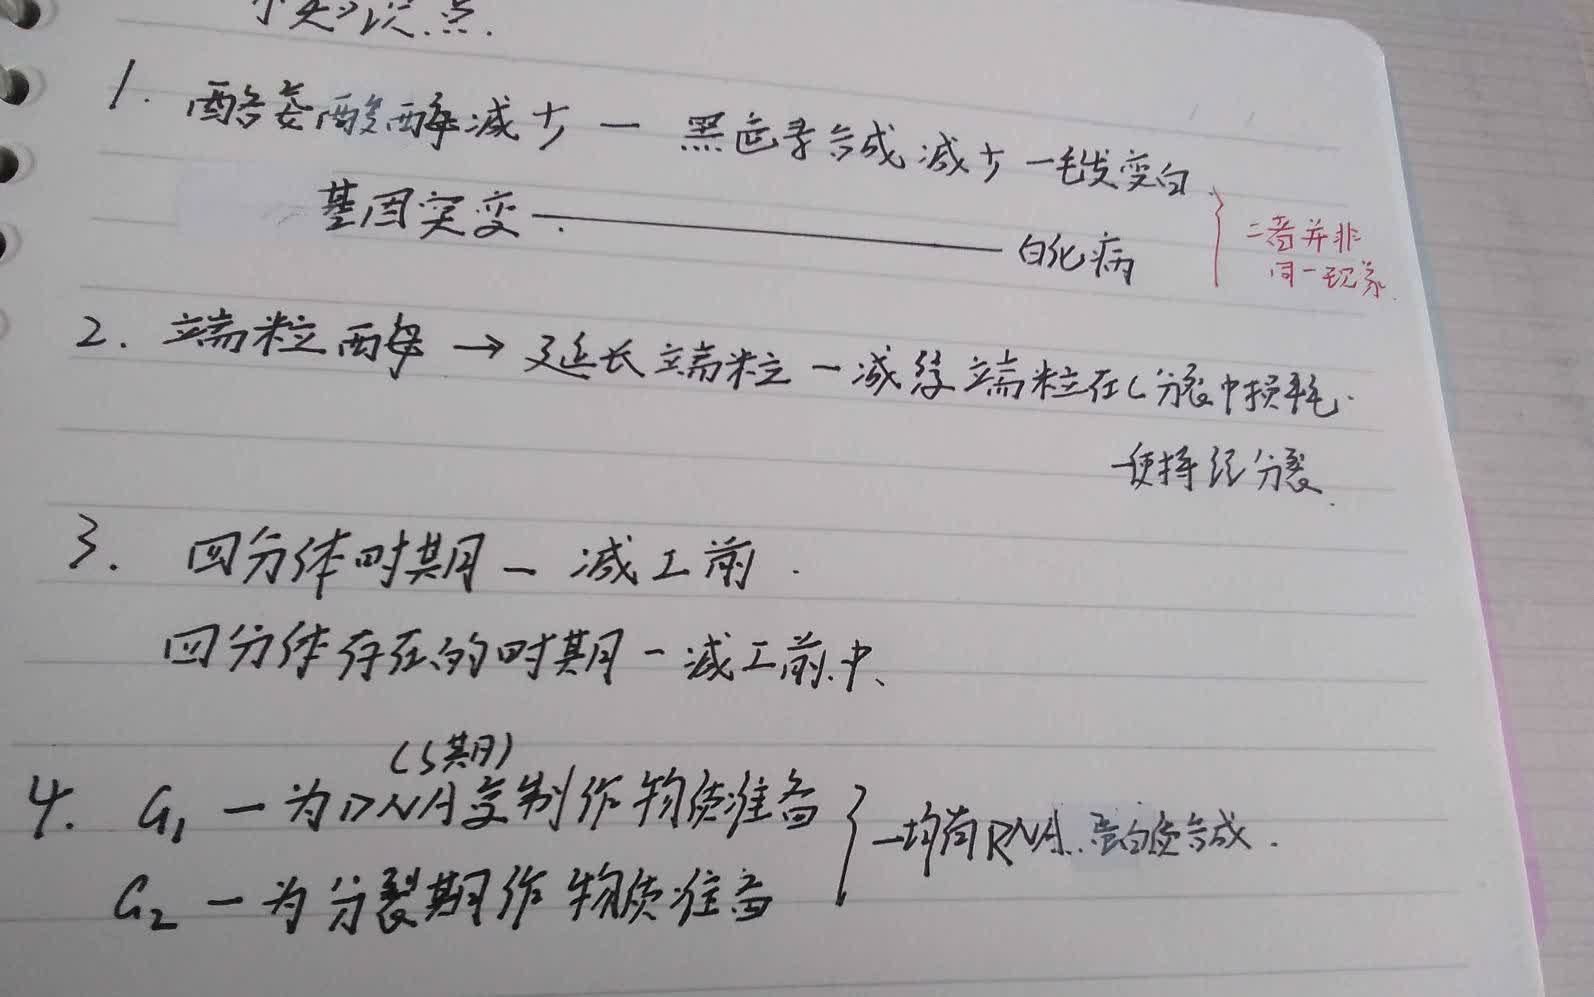 小知识点.
1. 酪氨酸酶减少 — 黑色素合成减少 — 毛发变白
基因突变 —— 白化病
二者并非
同一现象.
2. 端粒酶 → 延长端粒 — 减缓端粒在C分裂中损耗.
— 使持续分裂.
3. 四分体时期 — 减I前.
四分体存在的时期 — 减I前.中、
(S期)
4. G₁ — 为DNA复制作物质准备
G₂ — 为分裂期作物质准备
— 均有RNA.蛋白质合成.